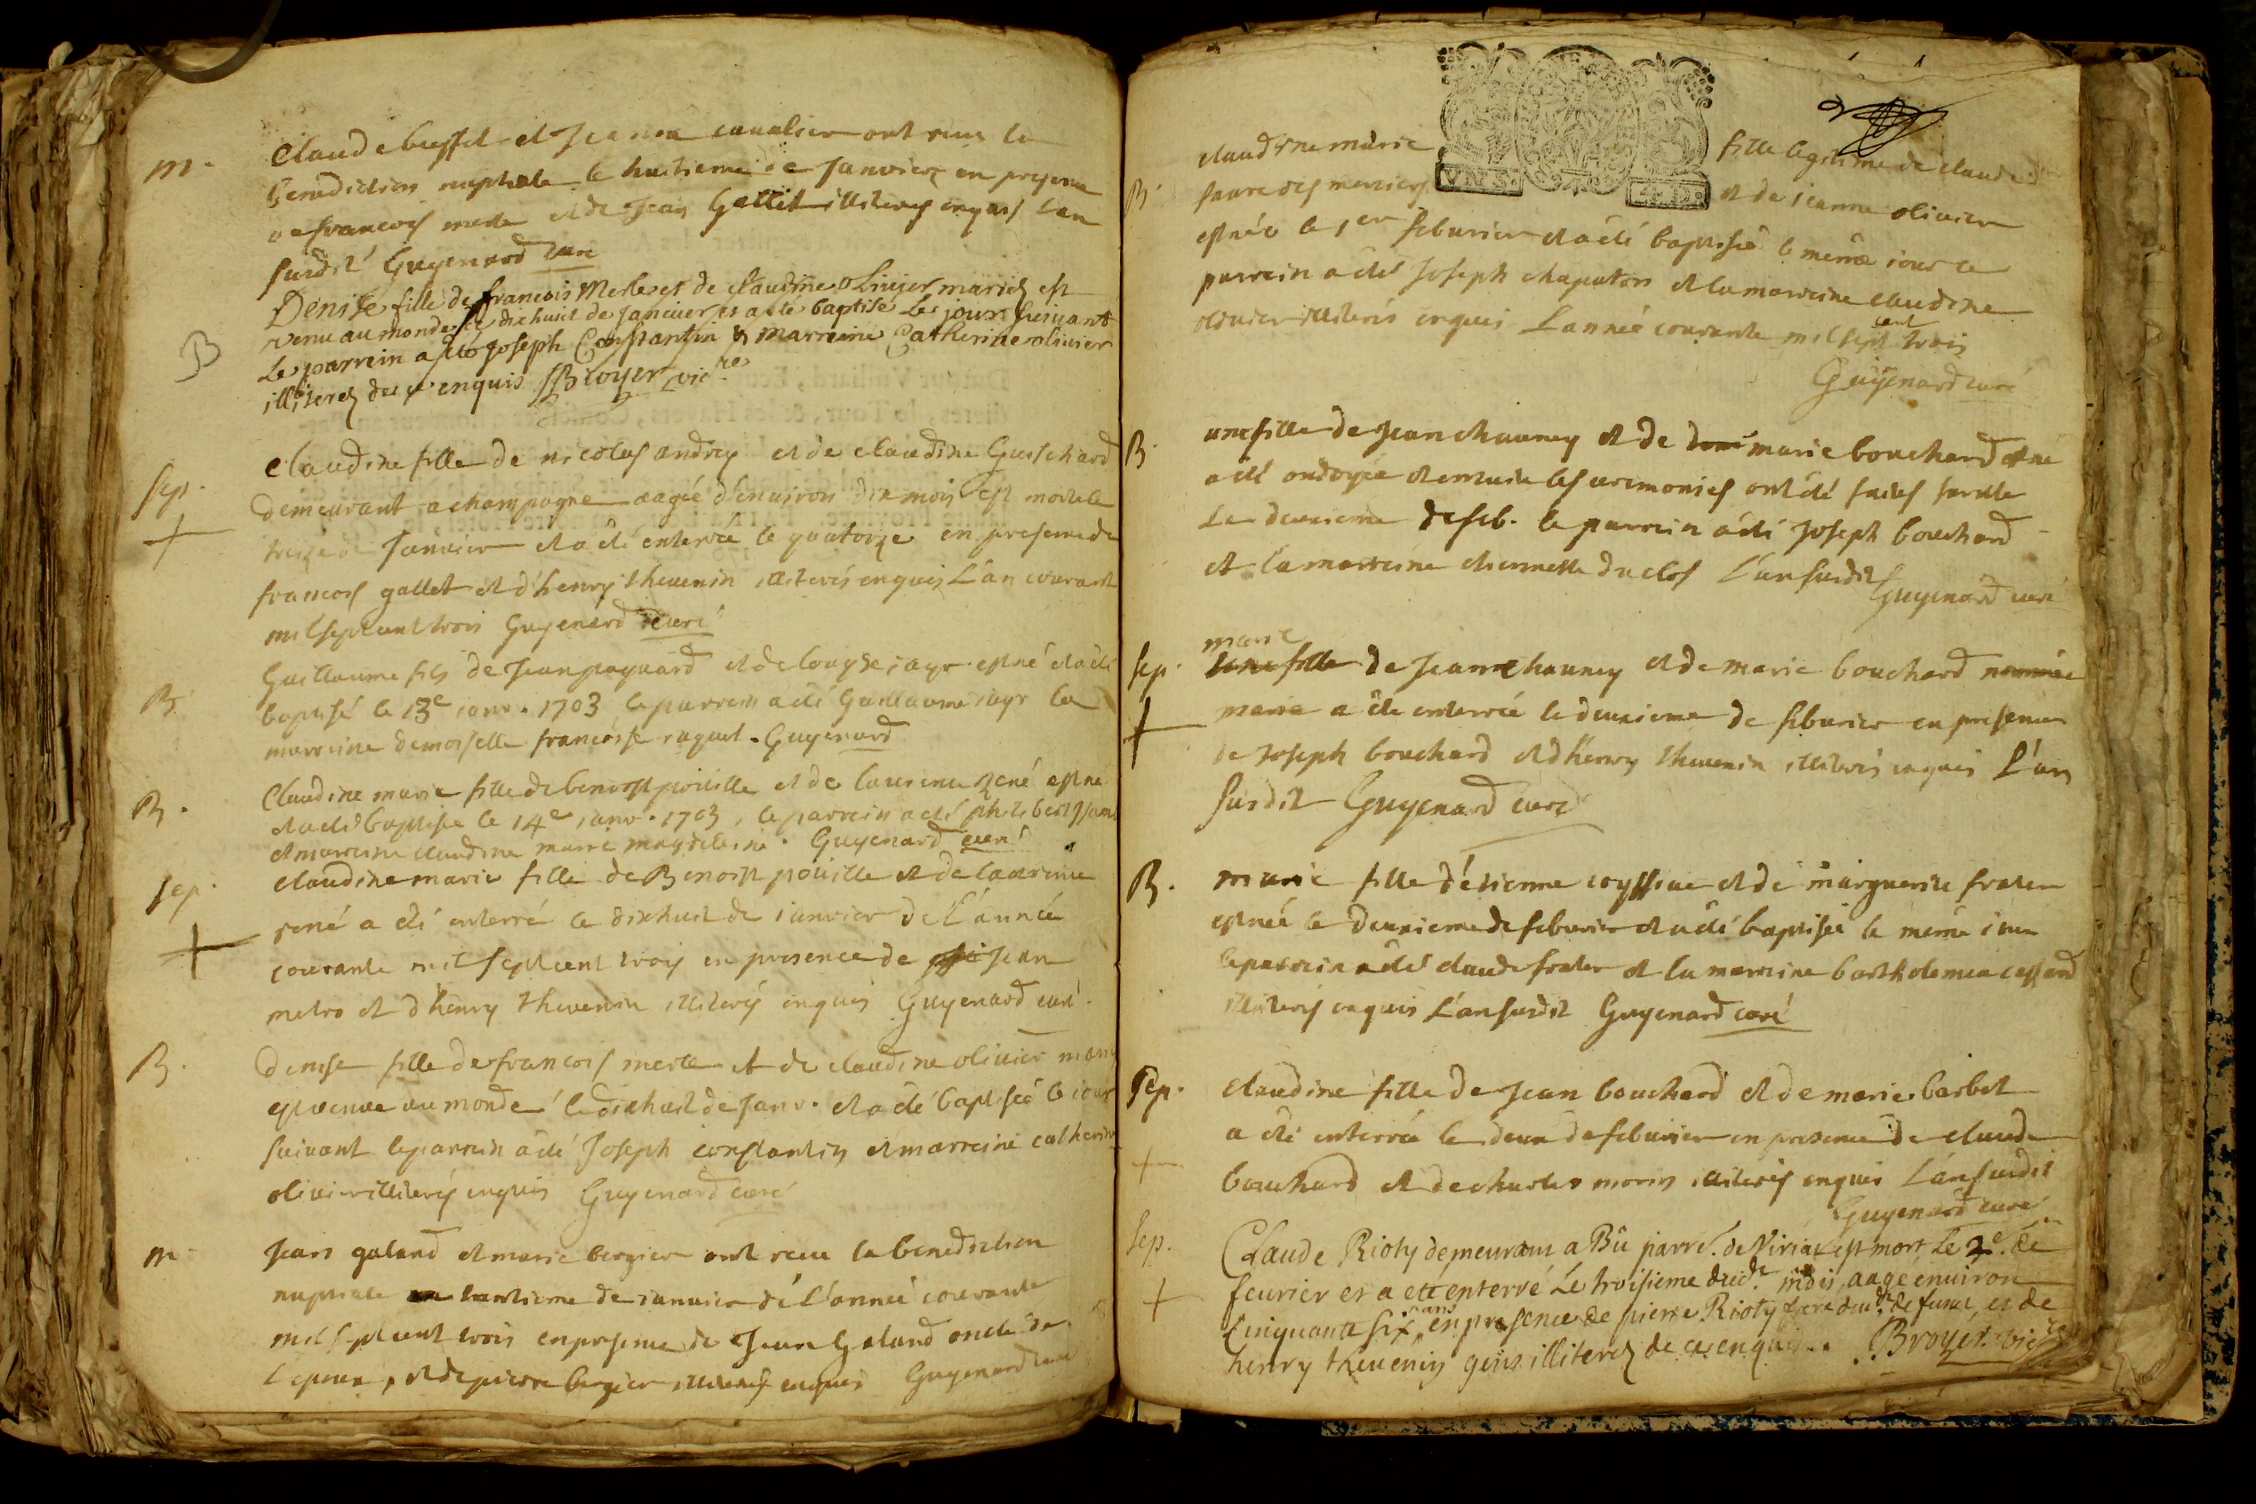 m.
Claude buffet et Jeanne cavalier ont receu la
benediction nuptiale le huitieme de Janvier en presence
de francois merle et de Jean Gallet illiterés enquis L'an
susdit Guyenard curé
B
Denise fille de francois Merle et de Claudine Oliuier mariez est
venu au monde le dixhuict de januier et a esté baptisé Le jour suiuant
Le parrein a esté Joseph Constantin & Marreine Catherine oliuier
illiterez de ce enquis Broyer vicre
sep.
Claudine fille de nicolas andrey et de claudine Guichard
demeurant a champagne aagée d'enuiron dix mois est morte le
treize de Januier et a été enterrée le quatorze en presence de
francois gallet et d'henry theuenin illiterés enquis L'an courant
mil sept cent trois Guyenard curé
B.
Guillaume fils de Jean paquard et de louyse jayr est né et a été
baptisé le 13e janv. 1703 le parrein a été Guillaume jayr la
marreine demoiselle francoise raquet. Guyenard
B.
Claudine marie fille de benoist poüille et de laurence rené est né
et a été baptisée le 14e janv. 1703, le parrein a été philibert
et marreine claudine marie magdeleine. Guyenard curé
sep.
claudine marie fille de Benoist poüille et de laurence
rené a été enterré le dixhuit de januier de L'année
courante mil sept cent trois en presence de Jean
metro et d'henry theuenin illiterés enquis Guyenard curé.
B.
denise fille de francois merle et de claudine oliuier mariés
est venue au monde le dixhuit de Janv. et a été baptisée le jour
suivant le parrein a été Joseph constantin et marreine catherine
oliuier illiterés enquis Guyenard curé
m.
Jean galand et marie bergier ont receu la benediction
nuptiale de januier de L'année courante
mil sept cent trois en presence de Jean Galand oncle de
L'epoux, et de pierre bergier illiterés enquis Guyenard curé
B.
claudine marie fille legitime de claude
faure des merciers et de jeanne oliuier
est née le 1er feburier et a été baptisée le même jour le
parrein a été Joseph chaputon et la marreine claudine
oliuier illiterés enquis L'année courante mil sept cent trois
Guyenard curé
B.
une fille de Jean chauney et de marie bouchard est né
a été ondoyée et ensuite les ceremonies ont été faites sur elle
Le deuxieme de feb. le parrein a été Joseph bouchard
et la marreine etiennette duclos L'an susdit
Guyenard curé
sep.
marie
une fille de Jean chauney et de marie bouchard nommée
marie a été enterrée le deuxieme de feburier en presence
de Joseph bouchard et d'henry theuenin illiterés enquis L'an
susdit Guyenard curé
B.
marie fille d'étienne et de marguerite frater
est née le deuxieme de feburier et a été baptisée le même jour
le parrein a été claude frater et la marreine bartholemea
illiterés enquis L'an susdit Guyenard curé
sep.
claudine fille de Jean bouchard et de marie barbet
a été enterrée le deux de feburier en presence de claude
bouchard et de charles morin illiterés enquis L'an susdit
Guyenard curé
sep.
Claude Rioty demeurant a Bu parré. de Viriat est mort Le 2e. de
feurier et a eté enterré Le troisieme dud. mois aagé enuiron
Cinquante six ans en presence de pierre Rioty frere dud. defunct et de
henry theuenin gens illiterez de ce enquis. Broyer vicre